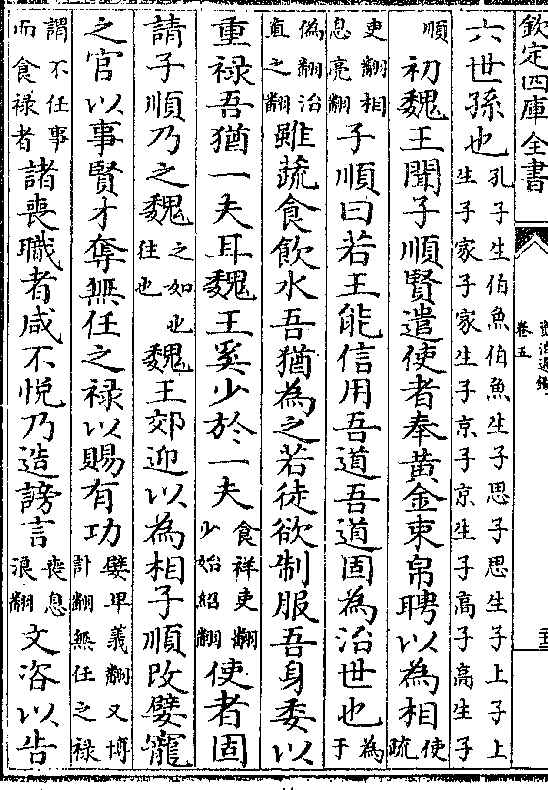 欽定四庫全書
資治通鑑
卷五
六世孫也孔子生伯魚伯魚生子思子思生子上子上
生子家子家生子京子京生子高子高生子
順初魏王聞子順賢遣使者奉黃金束帛聘以為相使疏
吏翻相
息亮翻子順曰若王能信用吾道吾道固為治世也為于
偽翻治
直之翻雖蔬食飲水吾猶為之若徒欲制服吾身委以
重祿吾猶一夫耳魏王奚少於一夫食祥吏翻
少始紹翻使者固
請子順乃之魏之如也
往也魏王郊迎以為相子順改嬖寵
之官以事賢才奪無任之祿以賜有功嬖卑義翻又博
計翻無任之祿
謂不任事
而食祿者諸喪職者咸不悅乃造謗言喪息
浪翻文咨以告